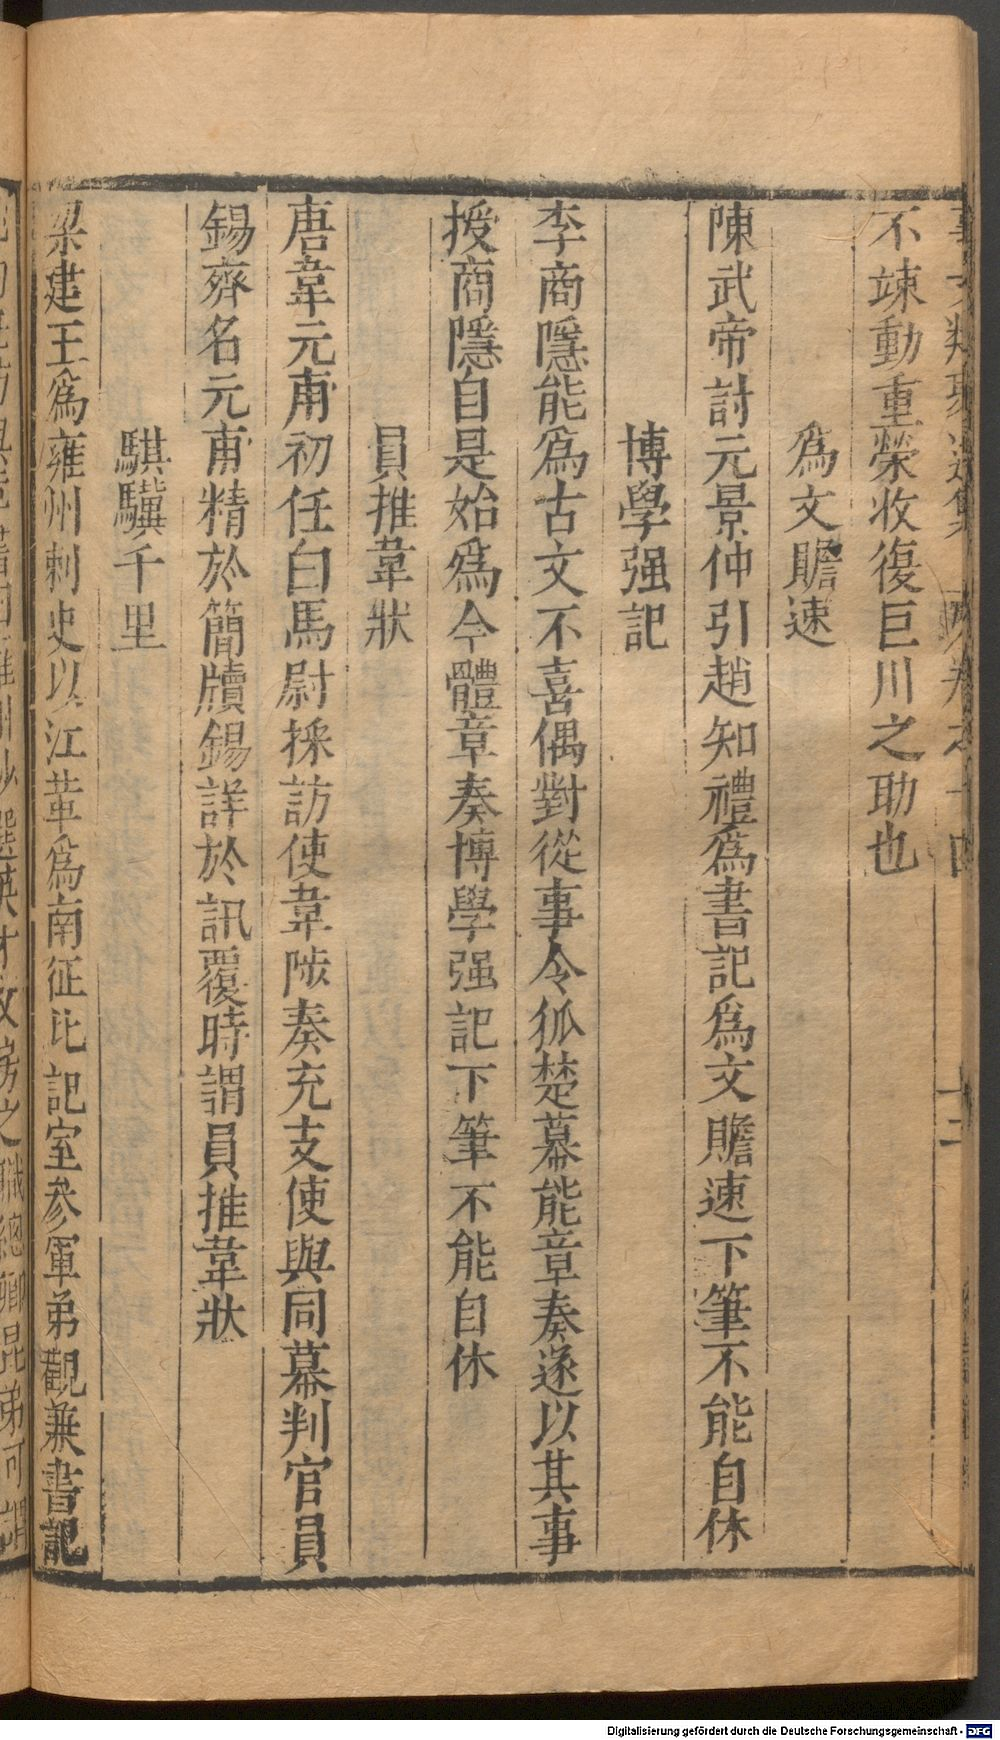 不竦動重榮收復巨川之助也
為文贍速
陳武帝討元景仲引趙知禮爲書記爲文贍速下筆不能自休
博學强記
李商隱能爲古文不喜偶對從事令狐楚幕能章奏遂以其事
授商隱自是始爲今體章奏博學强記下筆不能自休
員推韋狀
唐韋元甫初任白馬尉採訪使韋陟奏充支使與同幕判官員
錫齊名元甫精於簡牘錫詳於訊覆時謂員推韋狀
騏驥千里
梁建王爲雍州刺史以江革爲南征北記室參軍弟觀兼書記
Digitalisierung gefördert durch die Deutsche Forschungsgemeinschaft - DFG